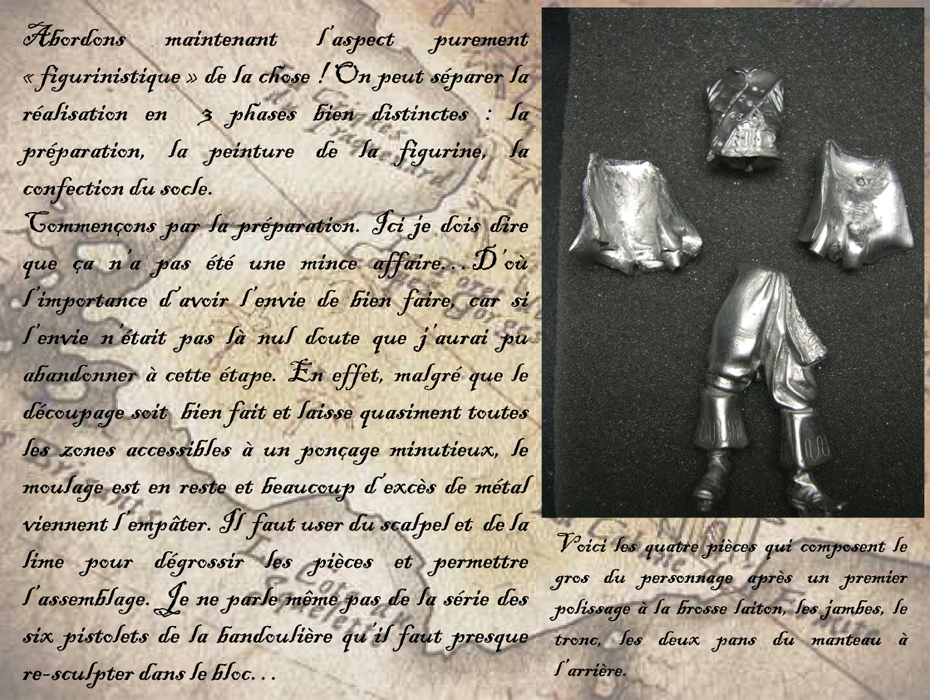 Abordons maintenant l'aspect purement
« figurinistique » de la chose ! On peut séparer la
réalisation en 3 phases bien distinctes : la
préparation, la peinture de la figurine, la
confection du socle.
Commençons par la préparation. Ici je dois dire
que ça n'a pas été une mince affaire…D'où
l'importance d'avoir l'envie de bien faire, car si
l'envie n'était pas là nul doute que j'aurai pu
abandonner à cette étape. En effet, malgré que le
découpage soit bien fait et laisse quasiment toutes
les zones accessibles à un ponçage minutieux, le
moulage est en reste et beaucoup d'excès de métal
viennent l'empâter. Il faut user du scalpel et de la
lime pour dégrossir les pièces et permettre
l'assemblage. Je ne parle même pas de la série des
six pistolets de la bandoulière qu'il faut presque
re-sculpter dans le bloc…
Voici les quatre pièces qui composent le
gros du personnage après un premier
polissage à la brosse laiton, les jambes, le
tronc, les deux pans du manteau à
l'arrière.